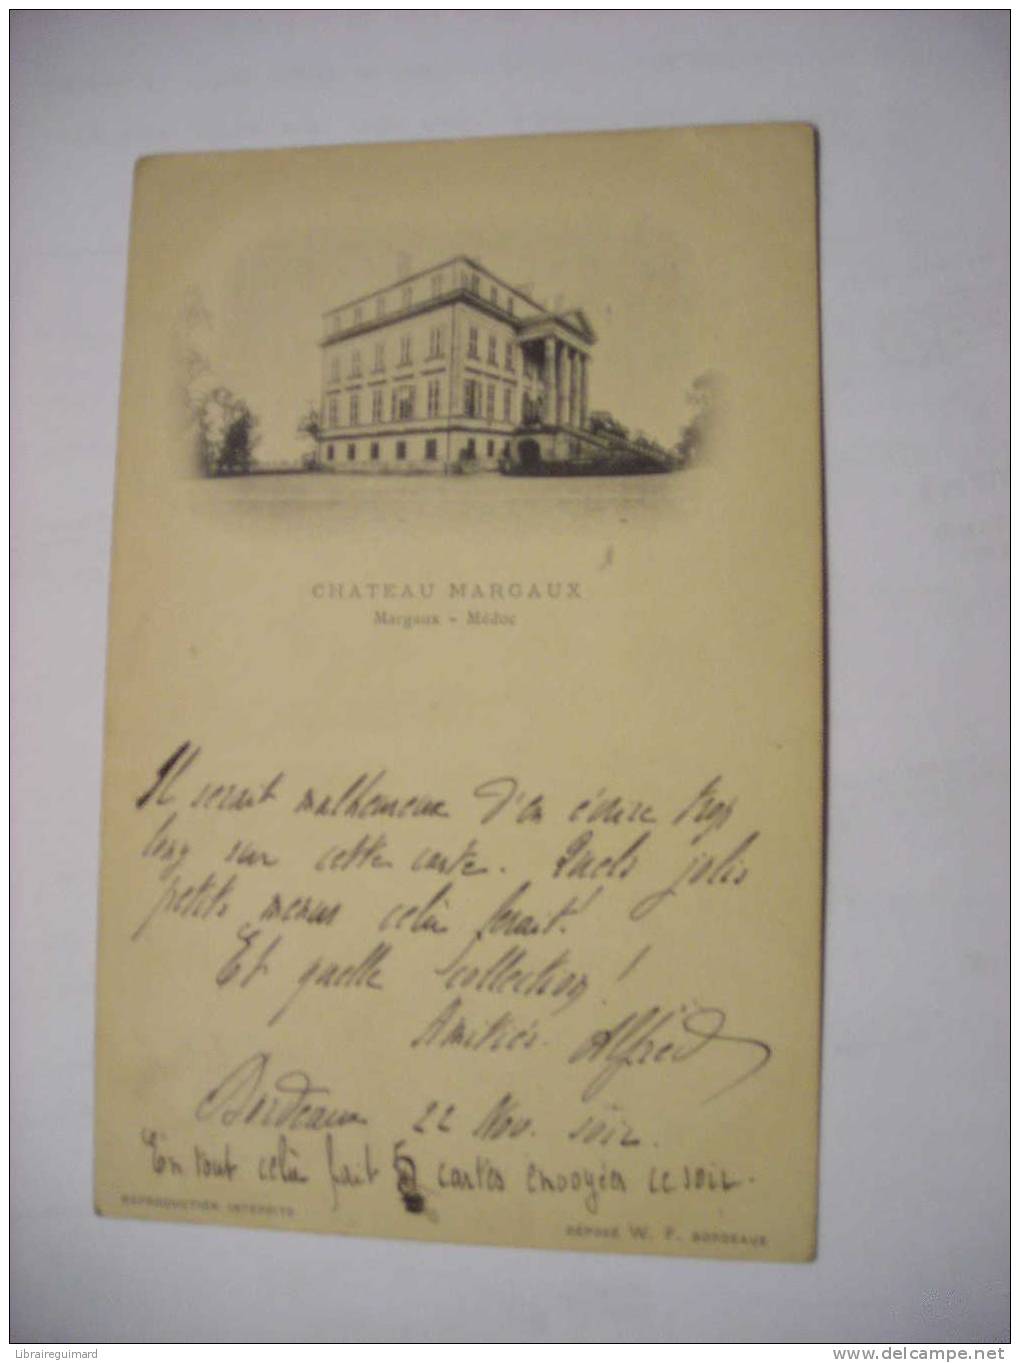 CHATEAU MARGAUX
Margaux - Médoc
Il serait malheureux d'en écrire trop
long sur cette carte. Quels jolis
petits menus celà ferait!
Et quelle collection!
Amitiés. Alfred
Bordeaux 22 Nov. soir.
En tout celà fait 5 cartes envoyées ce soir.
REPRODUCTION INTERDITE
DÉPOSÉ W. F. BORDEAUX
Libraireguimard
www.delcampe.net